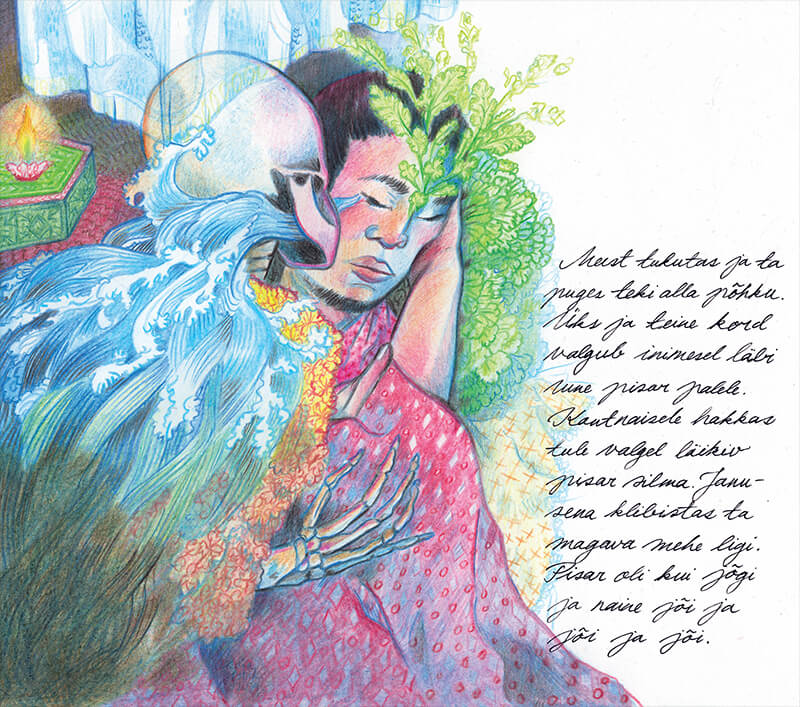 Meest tukutas ja ta
puges teki alla põhku.
Üks ja teine kord
valgub inimesel läbi
une pisar palele.
Kontnaisele hakkas
tule valgel läikiv
pisar silma. Janu-
sena klibistas ta
magava mehe ligi.
Pisar oli kui jõgi
ja naine jõi ja
jõi ja jõi.